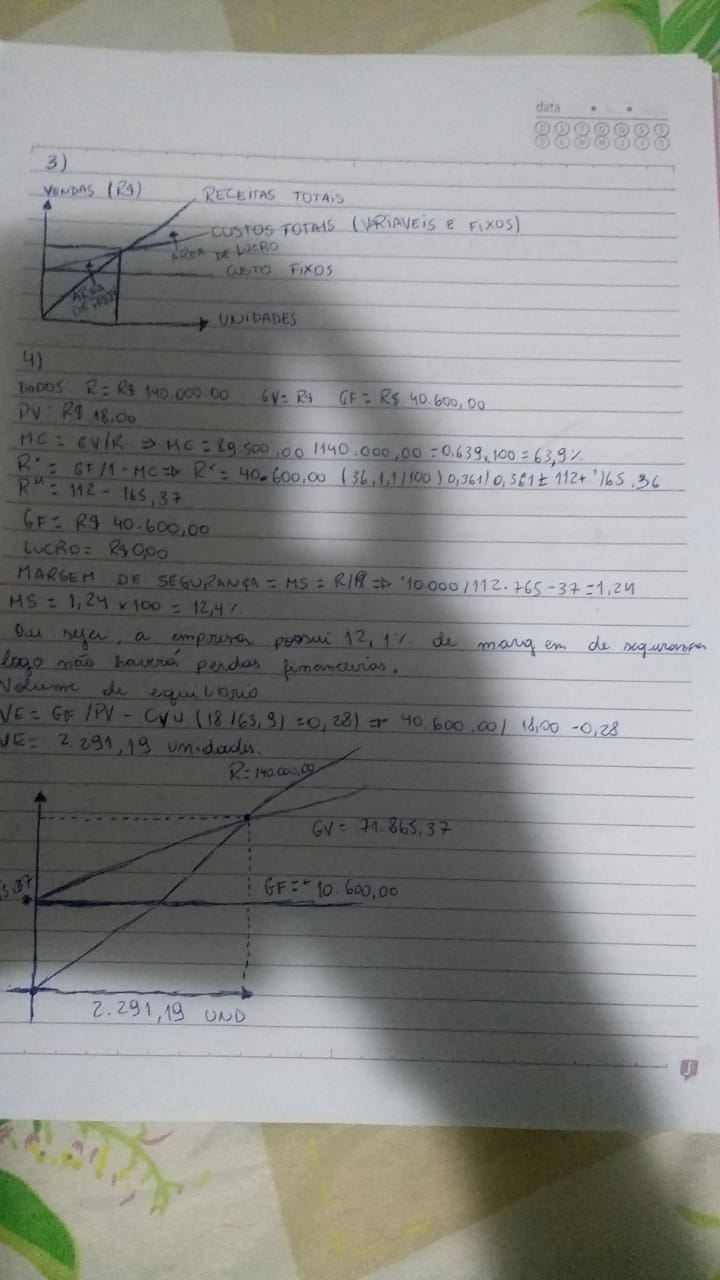 data
3)
VENDAS (R$)
RECEITAS TOTAIS
CUSTOS TOTAIS (VARIAVEIS E FIXOS)
AREA DE LUCRO
CUSTO FIXOS
AREA DE
UNIDADES
4)
DADOS: R = R$ 140.000.00 GV = R$ GF = R$ 40.600,00
PV: R$ 18,00
MC = GV/R => MC = 89.500,00 1140.000,00 = 0,639.100 = 63,9%
R* = GF/1-MC => R* = 40.600,00 (36,1,1/100) 0,361) 0,361 ± 112+'165.36
R* = 112 - 165,37
GF = R$ 40.600,00
LUCRO = R$ 0,00
MARGEM DE SEGURANÇA = MS = R/R* => '10.000/112.765-37 = 1,24
MS = 1,24 x 100 = 12,4%
Ou seja, a empresa possui 12,1% de margem de segurança
logo não haverá perdas financeiras.
Volume de equilibrio
VE = GF/PV - CVU (18/63,9) = 0,28) → 40.600,00/ 18,00 - 0,28
VE = 2.291,19 unidades.
R = 140.000,00
GV = 71.865,37
5,37
GF = 10.600,00
2.291,19 UND